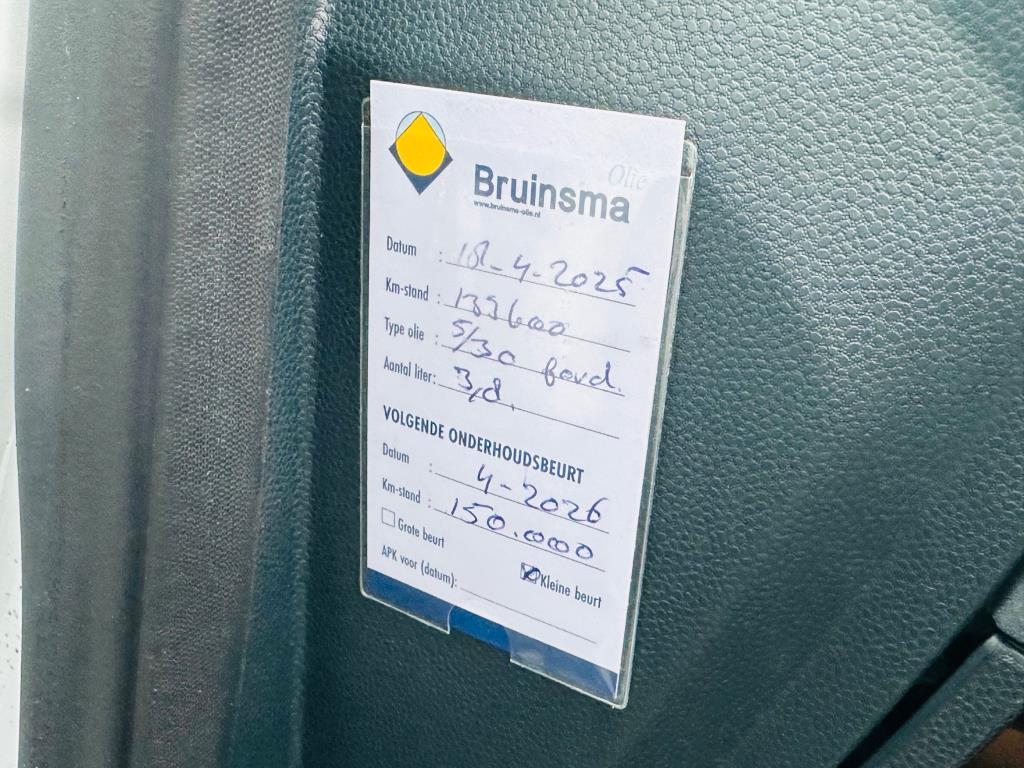 Olie
Bruinsma
www.bruinsma-olie.nl
Datum : 18-4-2025
Km-stand : 139600
Type olie : 5/30 ford.
Aantal liter: 3,8.
VOLGENDE ONDERHOUDSBEURT
Datum : 4-2026
Km-stand : 150.0000
Grote beurt
Kleine beurt
APK voor (datum):